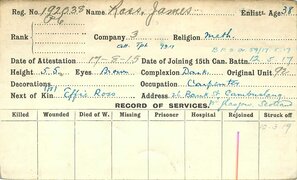 Reg. No. 192038 Name Ross, James Enlist. Age 38
Rank Company 3 Religion Meth.
Date of Attestation 17-8-15 Date of Joining 15th Can. Battn. 12.5.17
Height 5.5. Eyes Brown Complexion Dark Original Unit 92
Decorations Occupation Carpenter
Next of Kin Effie Ross Address 26 Bank St Cambuslang
Glasgow Scotland
RECORD OF SERVICES
Killed Wounded Died of W. Missing Prisoner Hospital Rejoined Struck off